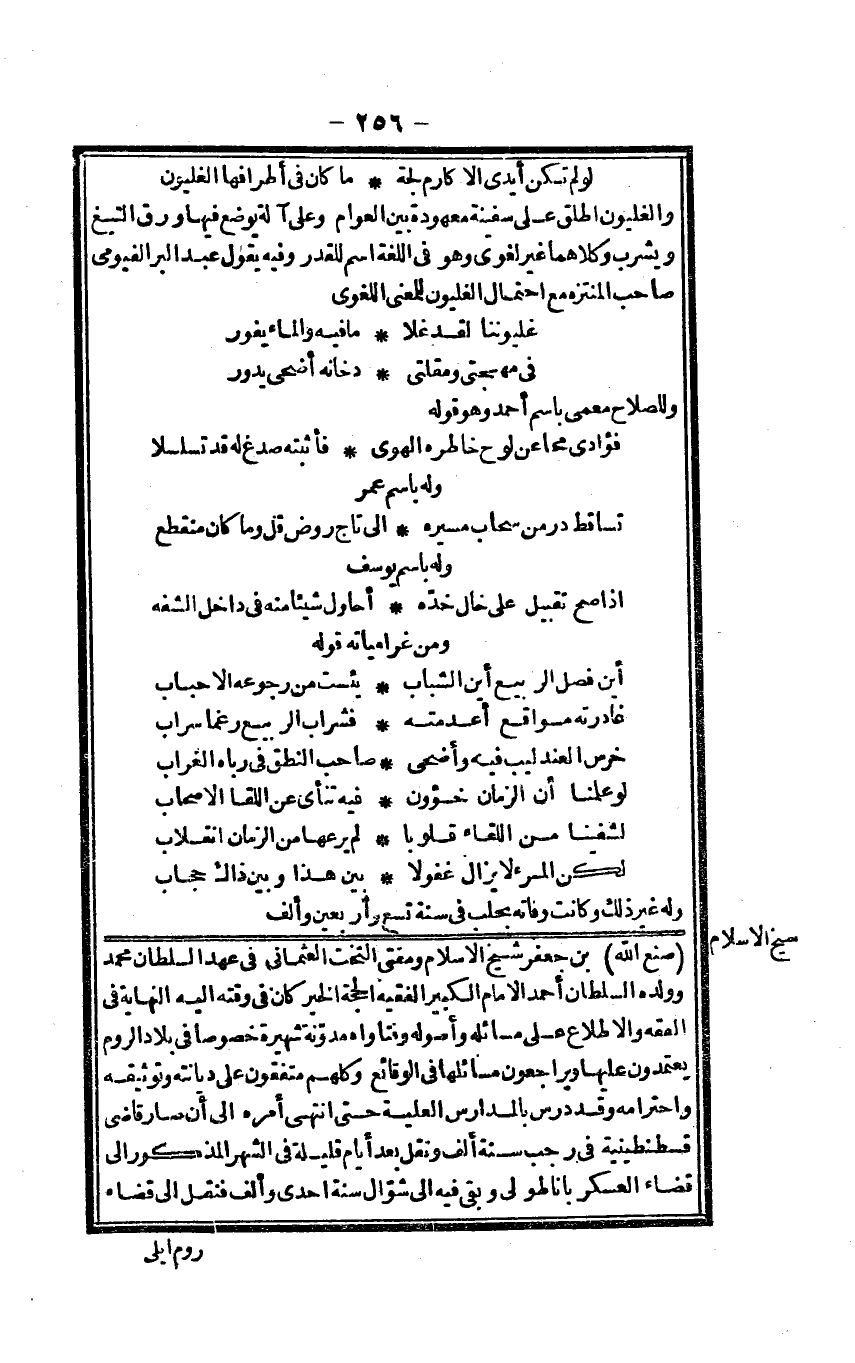 - ٢٥٦ -
لولم تكن أيدى الاكارم لجة * ما كان فى أطرافها الغليون
والغليون اطلق على سفينة معهودة بين العوام وعلى آلة يوضع فيها ورق التبغ
ويشرب وكلاهما غير لغوى وهو فى اللغة اسم للقدر وفيه يقول عبد البر الفيومى
صاحب المنتزه مع احتمال الغليون للمعنى اللغوى
غليوننا لقد غلا * مافيه والماء يفور
فى مهجتى ومقلتى * دخانه أضحى يدور
وللصلاح معمى باسم أحمد وهو قوله
فؤادى محا عن لوح خاطره الهوى * فأثبته صدغ له قد تسلسلا
وله باسم عمر
تساقط در من سحاب مسيره * الى تاج روض قل وما كان منقطع
وله باسم يوسف
اذا صح تقبيل على خال خدّه * أحاول شيئا منه فى داخل الشفه
ومن غرامياته قوله
أين فصل الربيع أين الشباب * يئست من رجوعه الاحباب
غادرته مواقع أعدمته * فشراب الربيع رغما سراب
خرس العندليب فيه وأضحى * صاحب النطق فى رباه الغراب
لو علمنا أن الزمان خؤون * فيه تنأى عن اللقا الاصحاب
لشفينا من اللقاء قلوبا * لم يرعها من الزمان انقلاب
لكن المرء لايزال غفولا * بين هذا وبين ذاك حجاب
وله غير ذلك وكانت وفاته بحلب فى سنة تسع وأربعين وألف
شيخ الاسلام
(صنع الله) بن جعفر شيخ الاسلام ومفتى التخت العثمانى فى عهد السلطان محمد
وولده السلطان أحمد الامام الكبير الفقيه الحجة الخير كان فى وقته اليه النهاية فى
الفقه والاطلاع على مسائله وأصوله وفتاواه مدوّنة شهيرة خصوصا فى بلاد الروم
يعتمدون عليها ويراجعون مسائلها فى الوقائع وكلهم متفقون على ديانته وتوثيقه
واحترامه وقد درس بالمدارس العلية حتى انتهى أمره الى أن صار قاضى
قسطنطينية فى رجب سنة ألف ونقل بعد أيام قليلة فى الشهر المذكور الى
قضاء العسكر باناطولى وبقى فيه الى شوّال سنة احدى وألف فنقل الى قضاء
روم ايلى